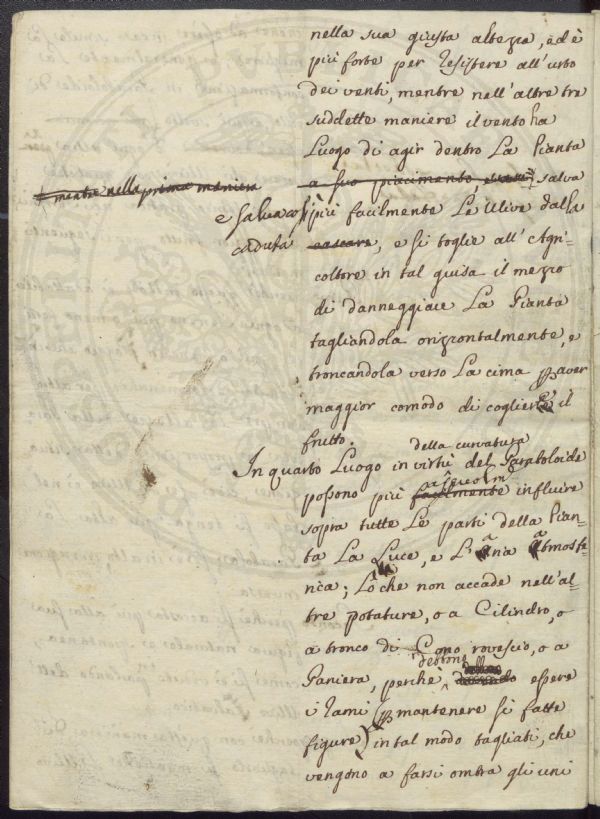 nella sua giusta altezza, ed è
più forte per resistere all'urto
dei venti, mentre nell'altre tre
suddette maniere il vento ha
Luogo di agir dentro La Pianta
mentre nella prima maniera
a suo piacimento, salva
e salvansi più facilmente Le Ulive dalla
caduta
cascare, e si toglie all'Agri-
coltore in tal guisa il mezzo
di danneggiare La Pianta
tagliandola orizzontalmente, e
troncandola verso La cima p aver
maggior comodo di coglierne il
frutto.
della curvatura
In quarto Luogo in virtù del Paraboloide
possono più facilmente influire
sopra tutte Le parti della Pian-
ta La Luce, e L'aria atmosfe-
rica; Lo che non accade nell'al-
tre potature, o a Cilindro, o
a tronco di Cono rovescio, o a
debbono
Paniera, perchè dovendo essere
i rami (p mantenere si fatte
figure) in tal modo tagliati, che
vengono a farsi ombra gli uni